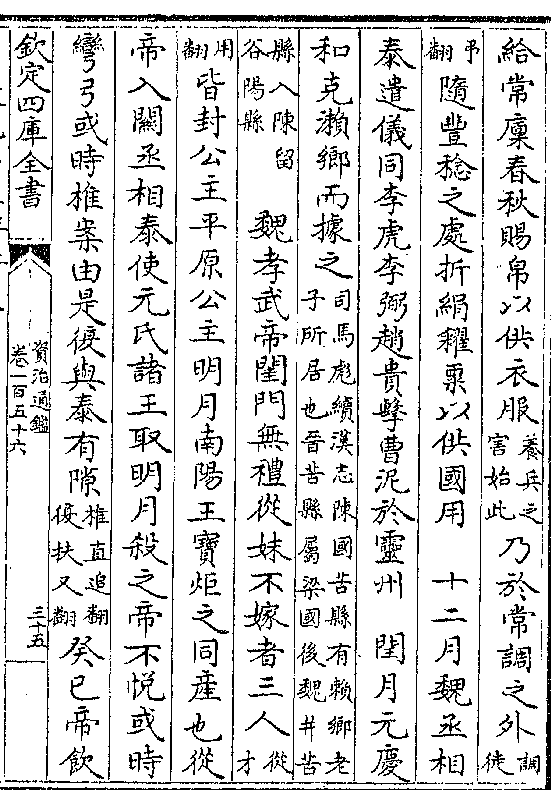 給常廩春秋賜帛以供衣服養兵之害始此乃於常調之外調徒
弔翻隨豐稔之處折絹糴粟以供國用　十二月魏丞相
泰遣儀同李虎李弼趙貴擊曹泥於靈州　閏月元慶
和克瀨鄉而據之司馬彪續漢志陳國苦縣有賴鄉老子所居也晉苦縣屬梁國後魏幷苦
縣入陳留谷陽縣　魏孝武帝閨門無禮從妹不嫁者三人從才
用翻皆封公主平原公主明月南陽王寶炬之同產也從
帝入關丞相泰使元氏諸王取明月殺之帝不悅或時
彎弓或時椎案由是復與泰有隙椎直追翻復扶又翻癸巳帝飲
欽定四庫全書
資治通鑑
卷一百五十六
三十五